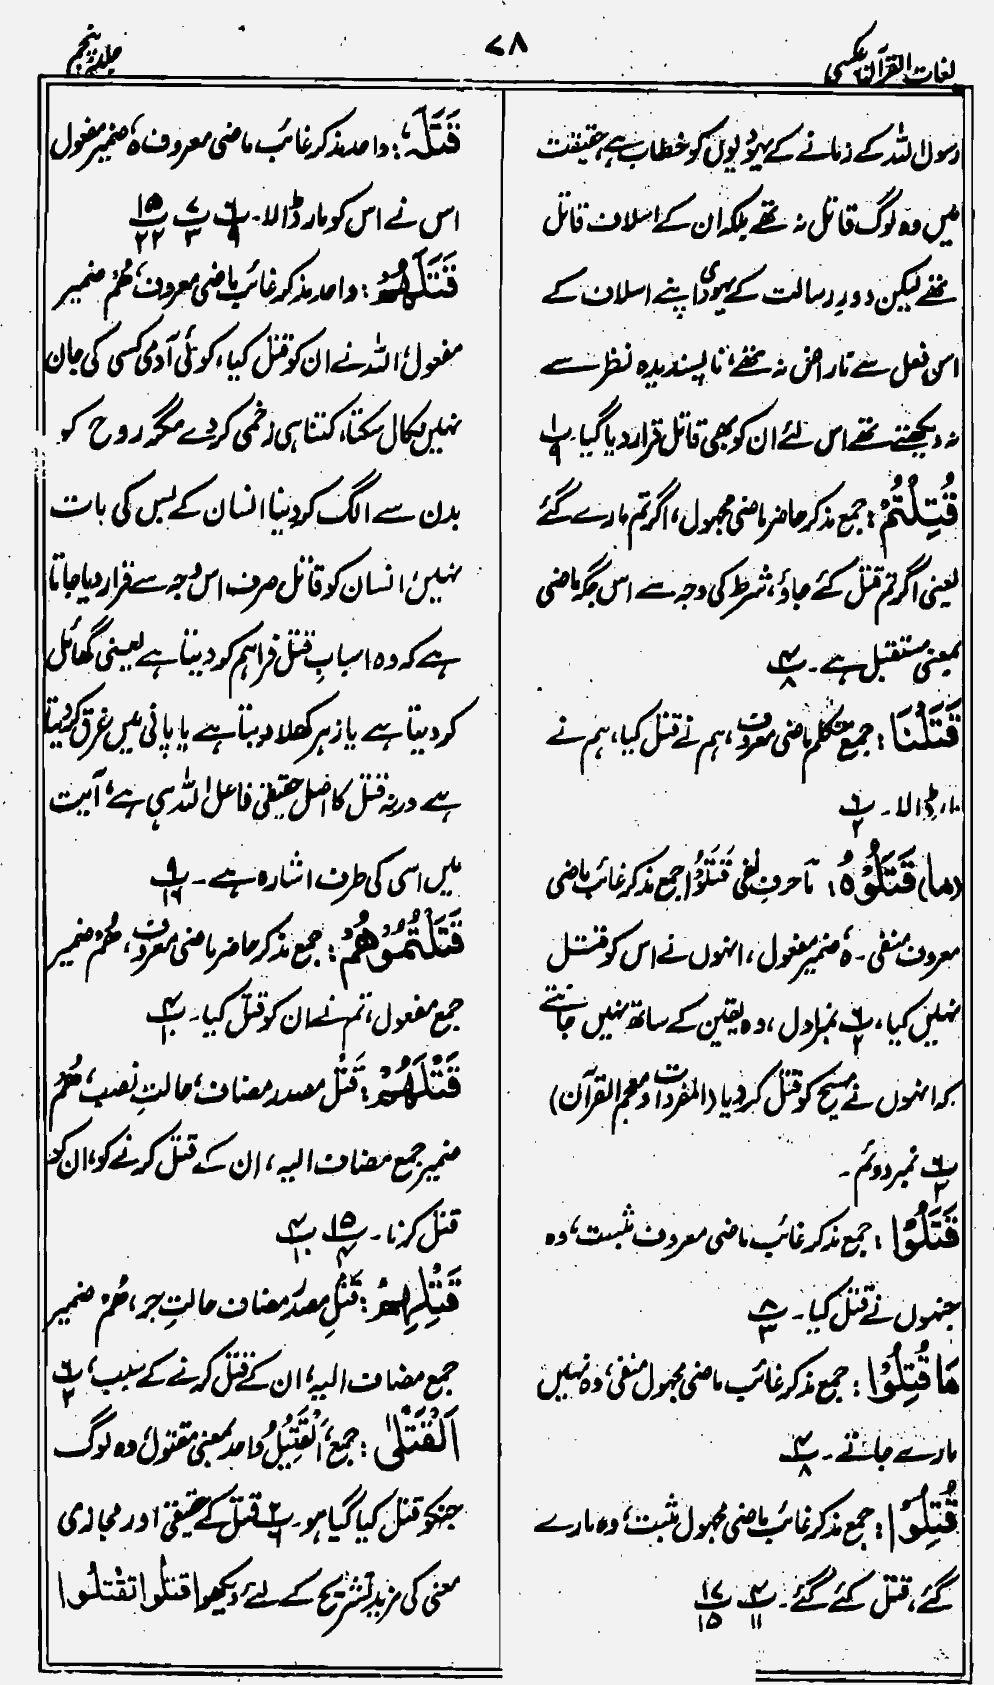 لغات القرآن عکسی
۷۸
جلد پنجم
رسول اللہ کے زمانے کے یہودیوں کو خطاب ہے، حقیقت
میں وہ لوگ قاتل نہ تھے بلکہ ان کے اسلاف قاتل
تھے لیکن دورِ رسالت کے یہودی اپنے اسلاف کے
اس فعل سے ناراض نہ تھے، ناپسندیدہ نظر سے
نہ دیکھتے تھے اس لئے ان کو بھی قاتل قرار دیا گیا۔ پ۱/۹
قُتِلْتُمْ: جمع مذکر حاضر ماضی مجہول، اگر تم مارے گئے
یعنی اگر تم قتل کئے جاؤ، شرط کی وجہ سے اس جگہ ماضی
بمعنی مستقبل ہے۔ پ۴/۸
قَتَلْنَا: جمع متکلم ماضی معروف، ہم نے قتل کیا، ہم نے
مار ڈالا۔ پ۶/۲
(مَا) قَتَلُوْہُ: مَا حرفِ نفی قَتَلُوْا جمع مذکر غائب ماضی
معروف منفی۔ ہ ضمیر مفعول، انہوں نے اس کو قتل
نہیں کیا، پ۶/۲ نمبر اول، وہ یقین کے ساتھ نہیں جانتے
کہ انہوں نے مسیح کو قتل کر دیا (المفردات و معجم القرآن)
پ۶/۲ نمبر دوئم۔
قَتَلُوْا: جمع مذکر غائب ماضی معروف مثبت، وہ
جنہوں نے قتل کیا۔ پ۸/۳
مَا قُتِلُوْا: جمع مذکر غائب ماضی مجہول منفی، وہ نہیں
مارے جاتے۔ پ۴/۸
قُتِلُوْا: جمع مذکر غائب ماضی مجہول مثبت، وہ مارے
گئے، قتل کئے گئے۔ پ۴/۱۱ پ۱۷/۱۵
قَتَلَہٗ: واحد مذکر غائب ماضی معروف ہ ضمیر مفعول
اس نے اس کو مار ڈالا۔ پ۶/۹ پ۷/۳ پ۱۵/۲۲
قَتَلَهُمْ: واحد مذکر غائب ماضی معروف، ھُمْ ضمیر
مفعول، اللہ نے ان کو قتل کیا، کوئی آدمی کسی کی جان
نہیں نکال سکتا، کتنا ہی زخمی کر دے مگر روح کو
بدن سے الگ کر دینا انسان کے بس کی بات
نہیں، انسان کو قاتل صرف اس وجہ سے قرار دیا جاتا
ہے کہ وہ اسبابِ قتل فراہم کر دیتا ہے یعنی گھائل
کر دیتا ہے یا زہر کھلا دیتا ہے یا پانی میں غرق کر دیتا
ہے ورنہ قتل کا اصل حقیقی فاعل اللہ ہی ہے، آیت
میں اسی کی طرف اشارہ ہے۔ پ۹/۱۶
قَتَلْتُمُوْهُمْ: جمع مذکر حاضر ماضی معروف، ھُمْ ضمیر
جمع مفعول، تم نے ان کو قتل کیا۔ پ۴/۱۰
قَتْلَهُمْ: قَتْلَ مصدر مضاف، حالتِ نصب، ھُمْ
ضمیر جمع مضاف الیہ، ان کے قتل کرنے کو، ان کو
قتل کرنا۔ پ۱۵/۴ پ۴/۱۰
قَتْلِهِمْ: قَتْلِ مصدر مضاف حالتِ جر، ھُمْ ضمیر
جمع مضاف الیہ، ان کے قتل کرنے کے سبب، پ۶/۲
اَلْقَتْلٰی: جمع، اَلْقَتِیْلُ واحد بمعنی مقتول، وہ لوگ
جنکو قتل کیا گیا ہو۔ پ۲/۶ قتل کے حقیقی اور مجازی
معنی کی مزید تشریح کے لئے دیکھو اقتلوا تقتلوا